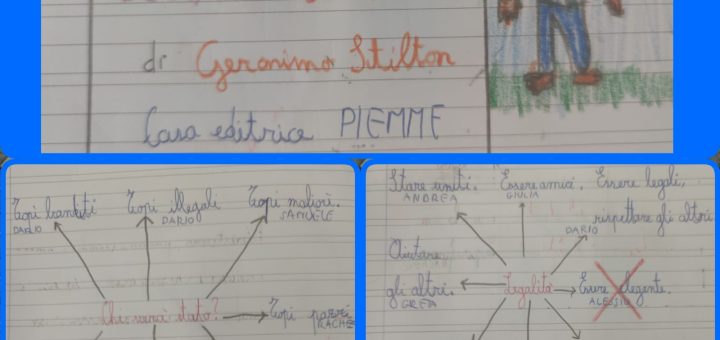 di Geronimo Stilton
Casa editrice PIEMME
Topi banditi
DARIO
Topi illegali
DARIO
Topi mafiosi.
SAMUELE
Chi sarà stato?
Topi
RACHE
Stare uniti.
ANDREA
Essere amici.
GIULIA
Essere legali,
rispettare gli altri
DARIO
Aiutare
gli altri.
GRETA
Legalità
Essere elegente.
ALESSIO